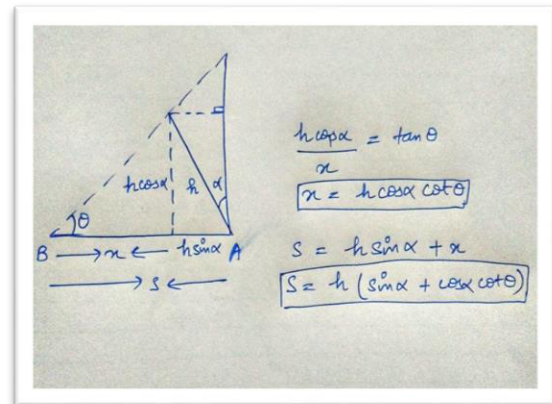 hcosα
h
α
θ
B → x ← hsinα A
→ s ←
hcosα/x = tanθ
x = hcosα cotθ
S = hsinα + x
S = h (sinα + cosα cotθ)